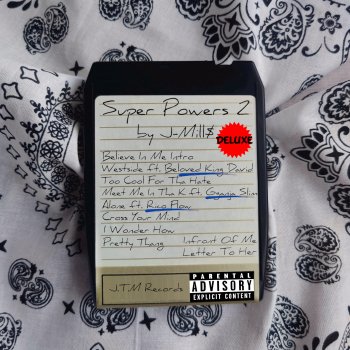 Super Powers 2
by J-Mill$
DELUXE
Believe In Me Intro
Westside ft. Beloved King David
Too Cool For Tha Hate
Meet Me In Tha K ft. Gwanja Slim
Alone ft. Rico Flow
Cross Your Mind
I Wonder How
Pretty Thang
Infront Of Me
Letter To Her
J.T.M Records
PARENTAL
ADVISORY
EXPLICIT CONTENT